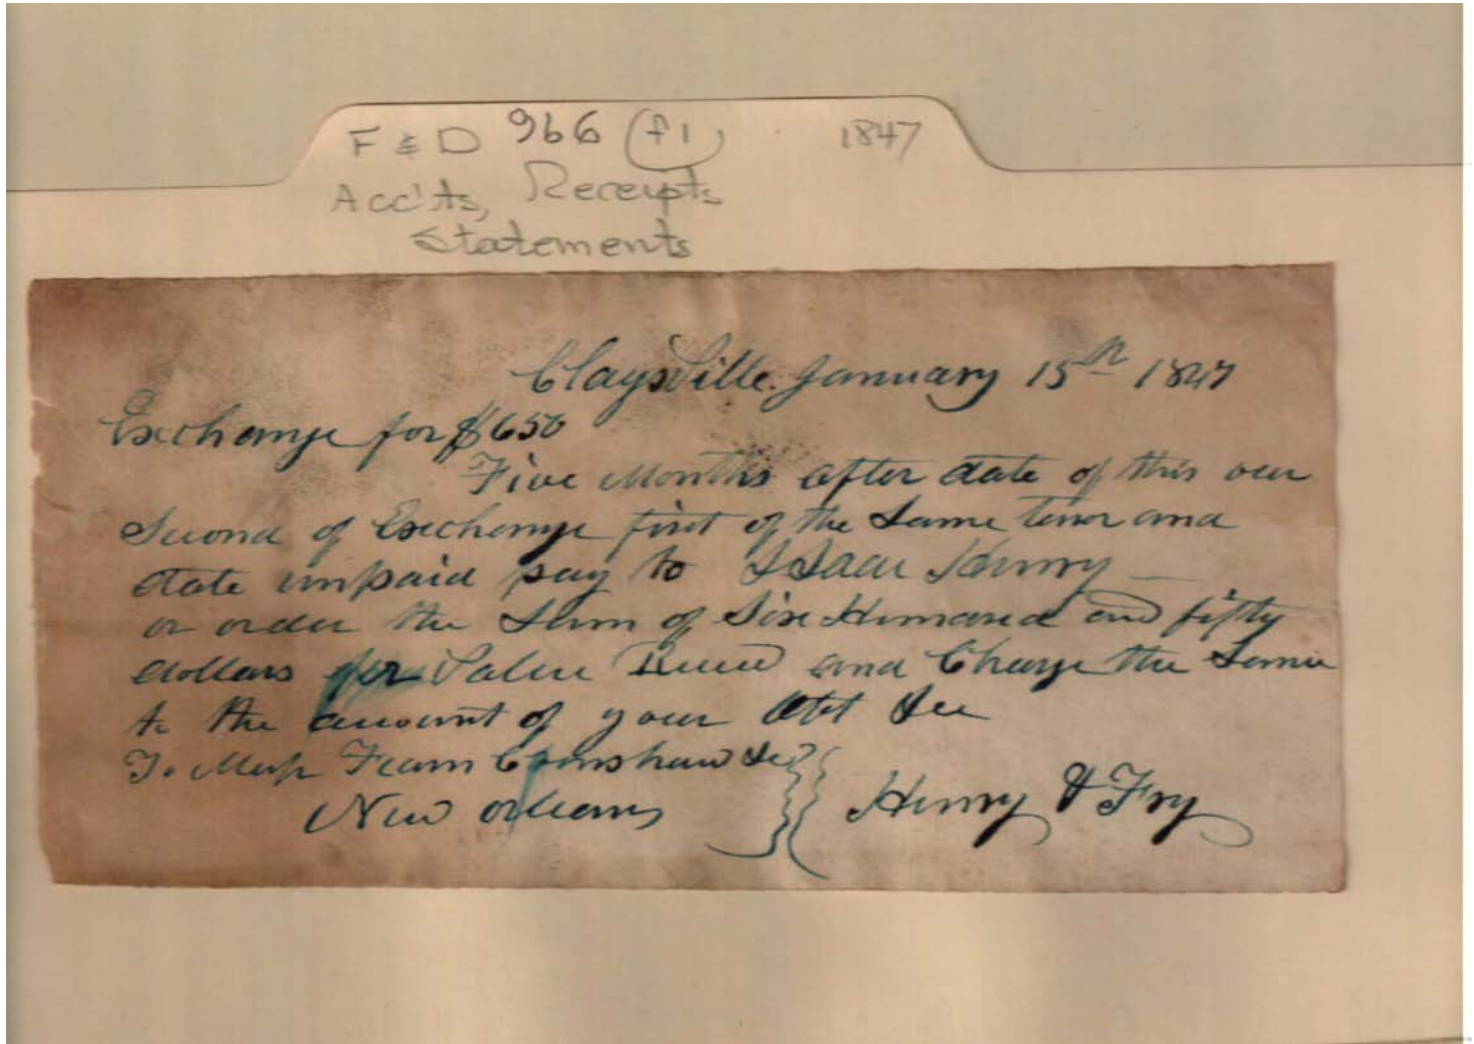 F & D 966 (f1) 1847
Acc'ts, Receipts
Statements
Claysville January 15th 1847
Exchange for $650
Five Months after date of this our
Second of Exchange first of the Same tenor and
date unpaid pay to Isaac Henry
or order the Sum of Six Hundred and fifty
dollars for Value Recd and Charge the Same
to the account of your Obt
To Messrs Fearn Crenshaw &c
New Orleans
Henry & Fry